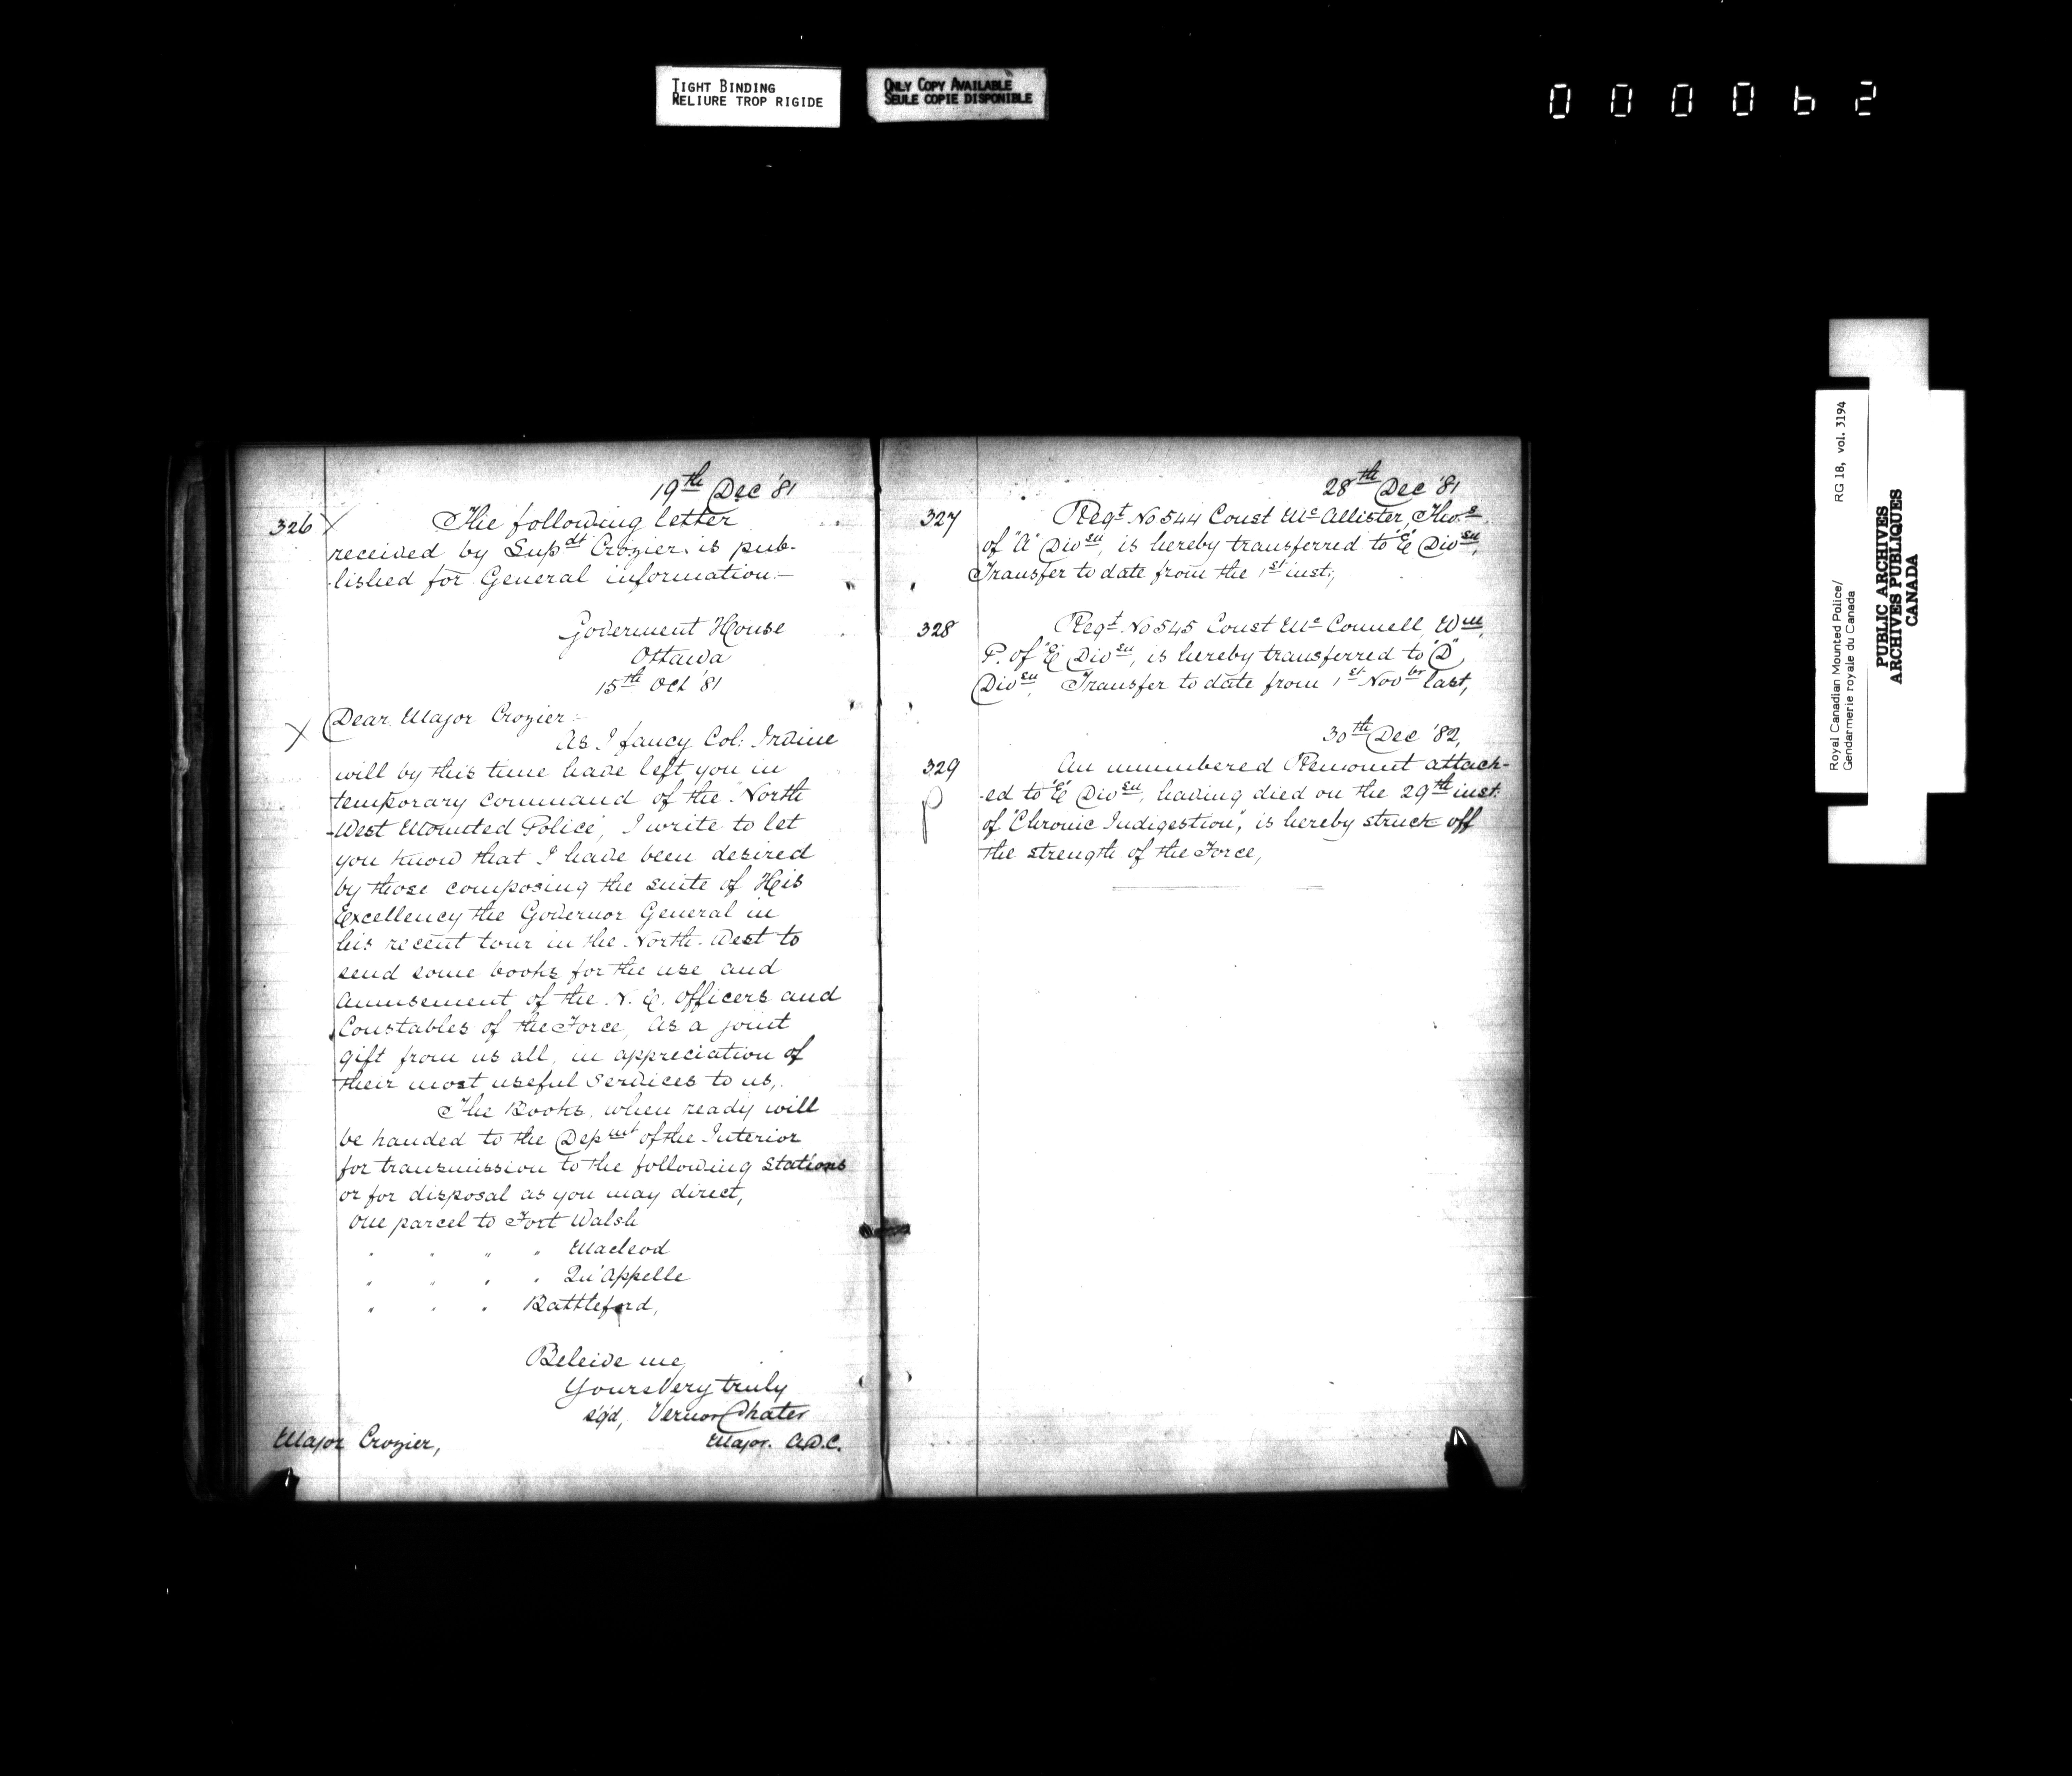 TIGHT BINDING
RELIURE TROP RIGIDE
ONLY COPY AVAILABLE
SEULE COPIE DISPONIBLE
000062
19th Dec '81
326 X The following letter
received by Supdt Crozier is pub-
lished for General information:-
Goverment House
Ottawa
15th Oct '81
X Dear Major Crozier:-
As I fancy Col: Irvine
will by this time have left you in
temporary command of the "North
-West Mounted Police", I write to let
you know that I have been desired
by those composing the suite of His
Excellency the Governor General in
his recent tour in the North-West to
send some books for the use and
amusement of the N. C. Officers and
Constables of the Force, as a joint
gift from us all, in appreciation of
their most useful services to us,.
The Books, when ready will
be handed to the Depmt of the Interior
for transmission to the following stations
or for disposal as you may direct,
One parcel to Fort Walsh
" " " " Macleod
" " " " Qu'Appelle
" " " Battleford,
Beleive me
Yours Very truly
sg'd, Vernor Chater
Major Crozier, Major. A.D.C.
28th Dec '81
327 Regt No 544 Const McAllister, Thos
of "A" Divsn, is hereby transferred to "E" Divsn,
Transfer to date from the 1st inst;,
328 Regt No 545 Const McConnell, Wm,
P. of "E" Divsn, is hereby transferred to "D",
Divsn, Transfer to date from 1st Novbr last,
30th Dec '82,
329 An unnumbered Remount attach-
-ed to "E" Divsn, having died on the 29th inst:
of "Chronic Indigestion", is hereby struck off
the strength of the Force,
Royal Canadian Mounted Police/
Gendarmerie royale du Canada
RG 18, vol. 3194
PUBLIC ARCHIVES
ARCHIVES PUBLIQUES
CANADA